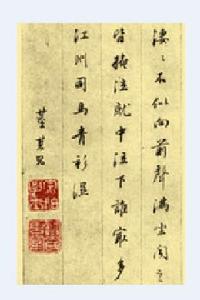 凄凄不似向前聲滿坐聞之
皆掩泣就中泣下誰寂多
江州司馬青衫濕
董其昌